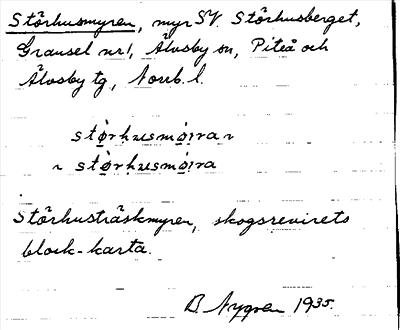 Störhusmyren, myr SV Störhusberget,
Gransel nr 1, Älvsby sn, Piteå och
Älvsby tg, Norrb. l.
stø̀rhusmøi̯ra ~
~ stø̀rhusmøi̯ra
Störhusträskmyren, skogsrevirets
block-karta.
B. Nygren 1935.